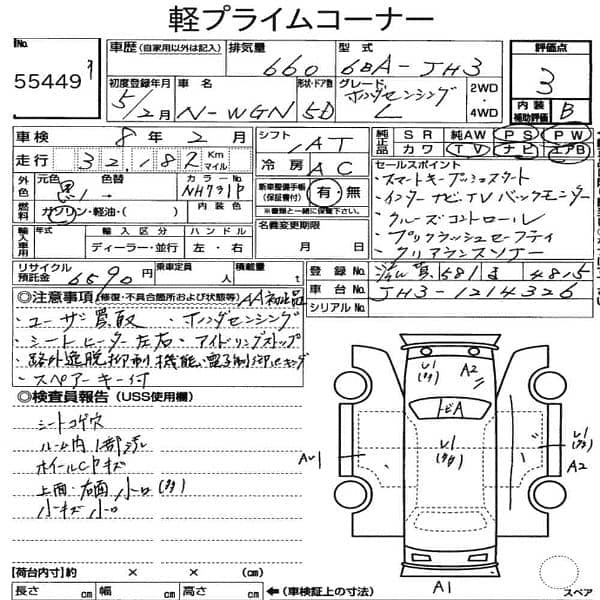 軽プライムコーナー
No.
55449
車歴 (自家用以外は記入) 排気量 660 型式 6BA-JH3
評価点
3
内装補助評価 B
初度登録年月 5/2月 車名 N-WGN 形状・ドア数 5D グレード ホンダセンシング L 2WD・4WD
車検 8年 2月 シフト IAT
純正 SR 純AW PS PW
社外 カワ TV ナビ エアB
走行 32,182 Km マイル 冷房 AC
外色 元色 黒 色替 カラーNo. NH731P
新車整備手帳 (保証書付) 有・無
※書類と一緒に保管下さい
セールスポイント
・スマートキープッシュスタート
・インターナビTVバックモニター
・クルーズコントロール
・プリクラッシュセーフティ
・クリアランスソナー
燃料 ガソリン・軽油・( ) 内装色
名義変更期限
月 日
輸入車用 年式 輸入区分 ハンドル
ディーラー・並行 左・右
リサイクル預託金 6590円 乗車定員 人 積載量 t
登録No. 581 4815
車台No. JH3-1214326
シリアルNo.
◎注意事項 (修復・不具合箇所および状態等)
・ユーザー買取 ・ホンダセンシング
・シートヒーター左右 ・アイドリングストップ
・路外逸脱抑制機能
・スペアーキー付
◎検査員報告 (USS使用欄)
シートコゲ穴
ルーム内1部汚レ
ホイールCPキズ
上面・右面小口
小キズ小口
A2
トビA
A1
A2
A1
スペア
【荷台内寸】約 × × (cm)
長さ cm 幅 cm 高さ cm ←(車検証上の寸法)